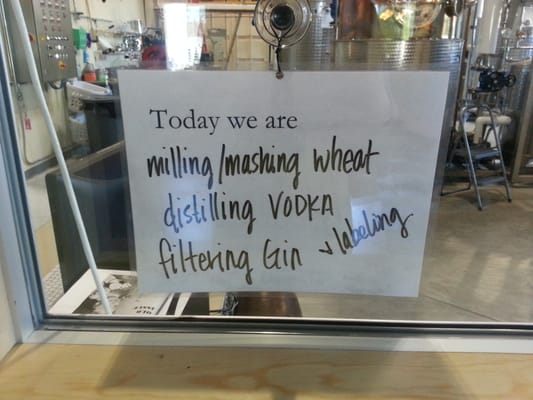 Today we are
milling/mashing wheat
distilling VODKA
filtering Gin & labeling